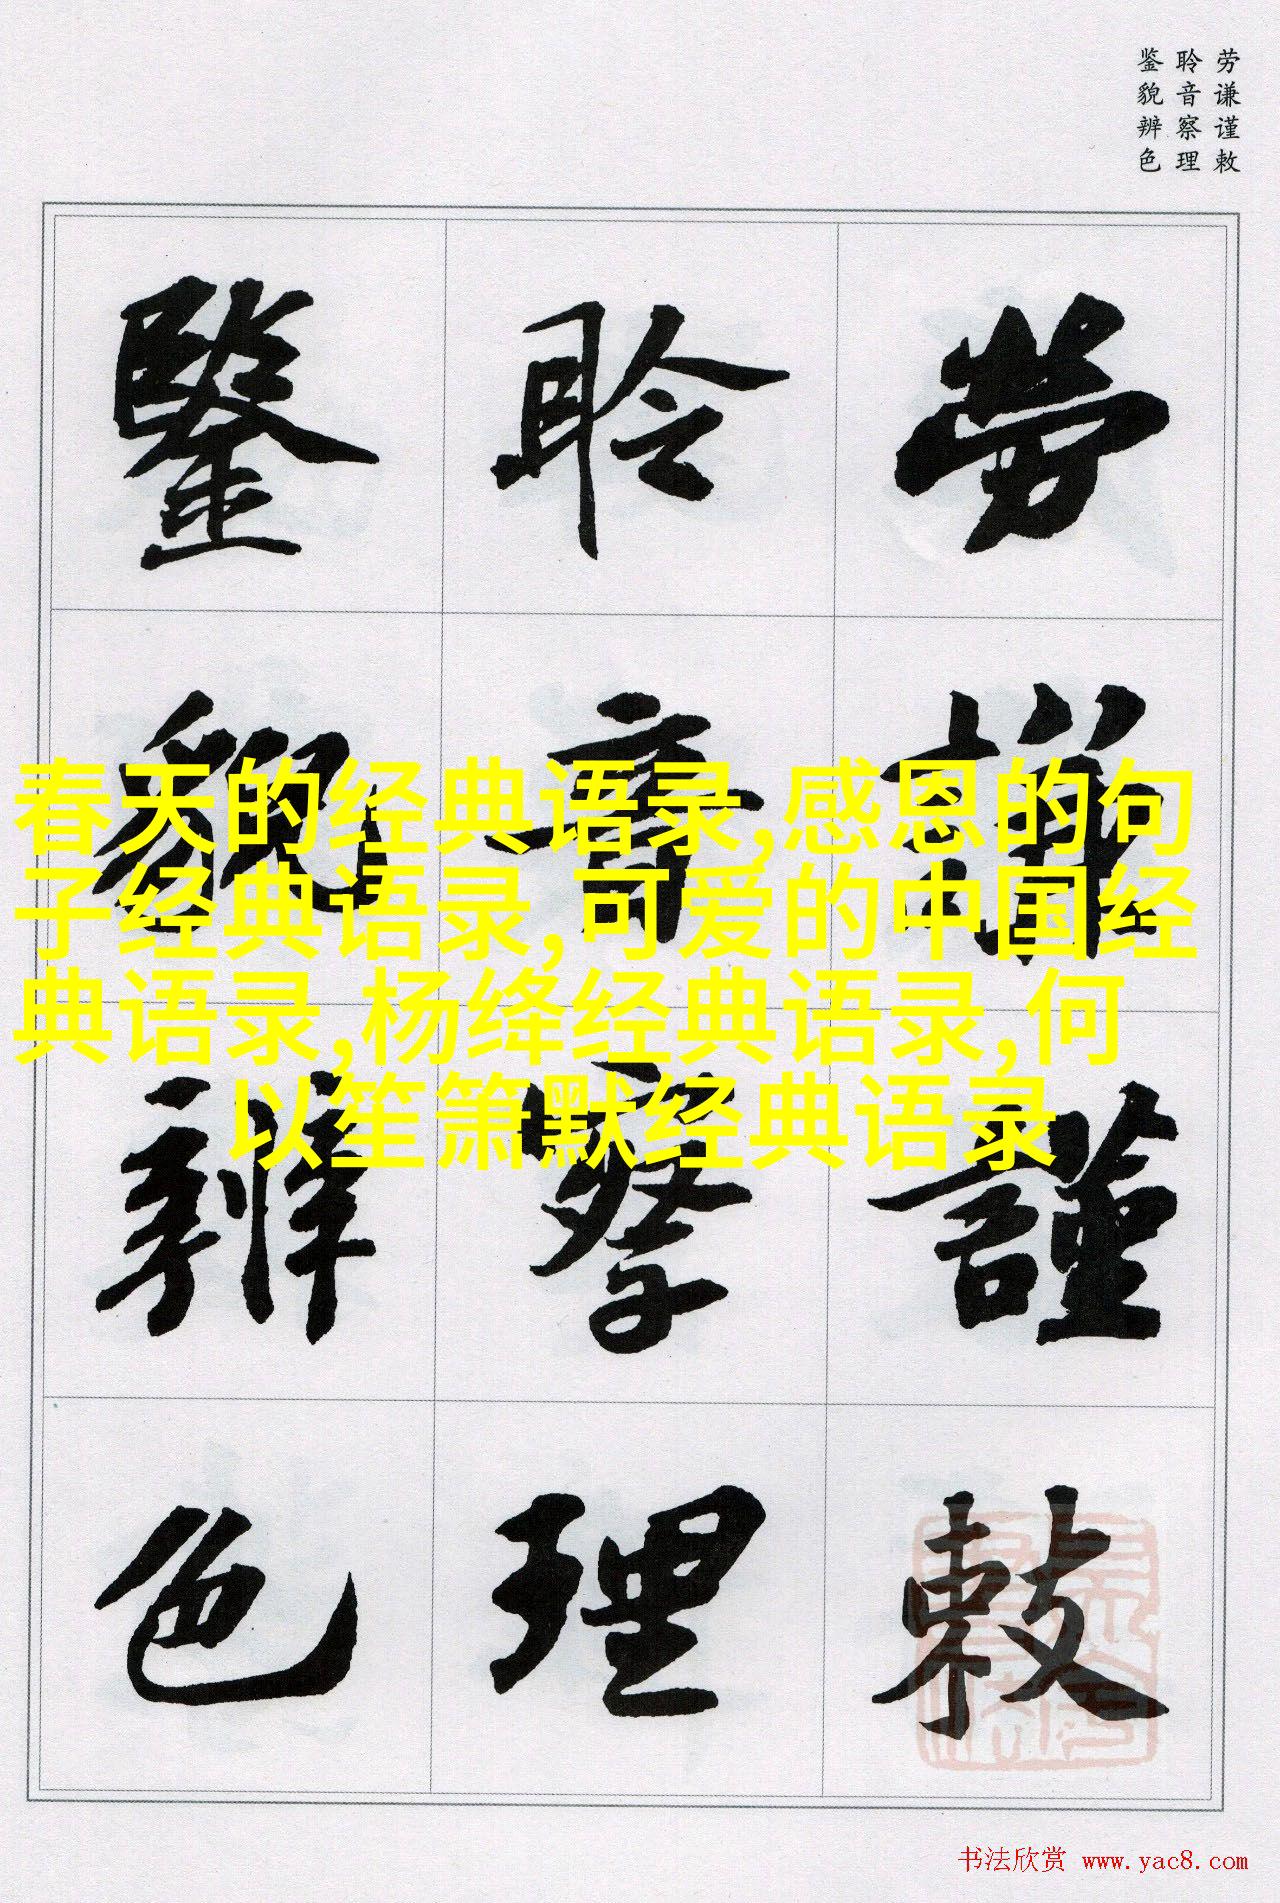 劳谦谨敕
聆音察理
鉴貌辨色
勞謙謹敕
聆音察理
鑒貌辨色
春天的经典语录,感恩的句
子经典语录,可爱的中国经
典语录,杨绛经典语录,何
以笙箫默经典语录
书法欣赏 www.yac8.com